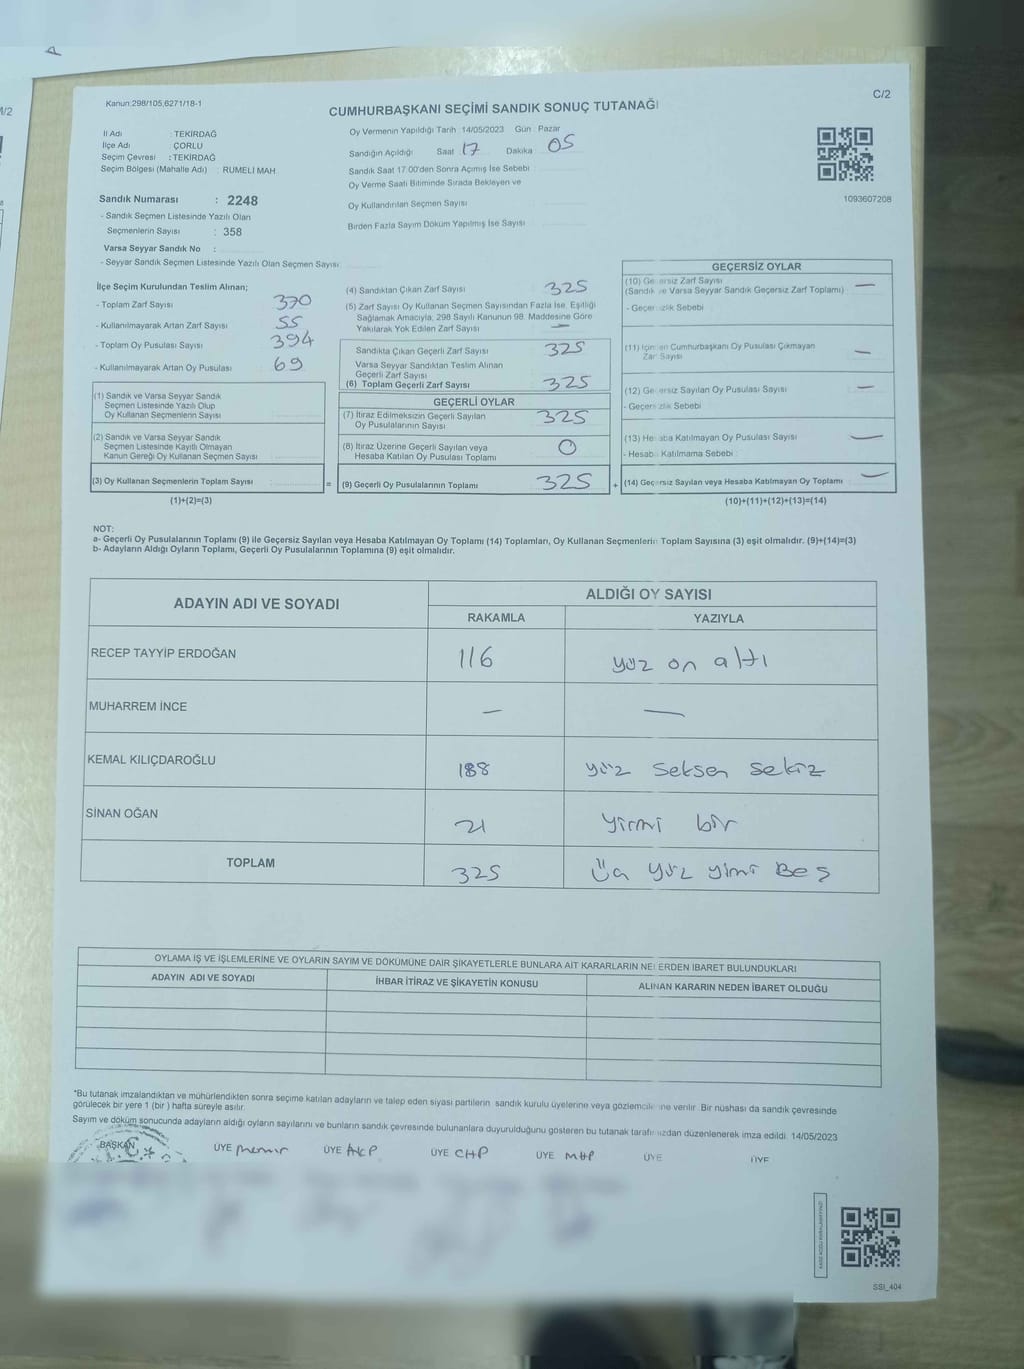 Kanun:298/105,6271/18-1
C/2
CUMHURBAŞKANI SEÇİMİ SANDIK SONUÇ TUTANAĞI
İl Adı : TEKİRDAĞ
İlçe Adı : ÇORLU
Seçim Çevresi : TEKİRDAĞ
Seçim Bölgesi (Mahalle Adı) : RUMELİ MAH.
Oy Vermenin Yapıldığı Tarih 14/05/2023 Gün : Pazar
Sandığın Açıldığı Saat 17 Dakika 05
Sandık Saat 17:00'den Sonra Açımış İse Sebebi
Oy Verme Saati Bitiminde Sırada Bekleyen ve
Oy Kullandırılan Seçmen Sayısı
Birden Fazla Sayım Döküm Yapılmış İse Sayısı
1093607208
Sandık Numarası : 2248
- Sandık Seçmen Listesinde Yazılı Olan
Seçmenlerin Sayısı : 358
Varsa Seyyar Sandık No :
- Seyyar Sandık Seçmen Listesinde Yazılı Olan Seçmen Sayısı:
İlçe Seçim Kurulundan Teslim Alınan;
- Toplam Zarf Sayısı 370
- Kullanılmayarak Artan Zarf Sayısı 55
- Toplam Oy Pusulası Sayısı 394
- Kullanılmayarak Artan Oy Pusulası 69
(1) Sandık ve Varsa Seyyar Sandık
Seçmen Listesinde Yazılı Olup
Oy Kullanan Seçmenlerin Sayısı
(2) Sandık ve Varsa Seyyar Sandık
Seçmen Listesinde Kayıtlı Olmayan
Kanun Gereği Oy Kullanan Seçmen Sayısı
(3) Oy Kullanan Seçmenlerin Toplam Sayısı
(1)+(2)=(3)
(4) Sandıktan Çıkan Zarf Sayısı 325
(5) Zarf Sayısı Oy Kullanan Seçmen Sayısından Fazla İse, Eşitliği
Sağlamak Amacıyla, 298 Sayılı Kanunun 98. Maddesine Göre
Yakılarak Yok Edilen Zarf Sayısı —
Sandıkta Çıkan Geçerli Zarf Sayısı 325
Varsa Seyyar Sandıktan Teslim Alınan
Geçerli Zarf Sayısı
(6) Toplam Geçerli Zarf Sayısı 325
GEÇERLİ OYLAR
(7) İtiraz Edilmeksizin Geçerli Sayılan
Oy Pusulalarının Sayısı 325
(8) İtiraz Üzerine Geçerli Sayılan veya
Hesaba Katılan Oy Pusulası Toplamı 0
= (9) Geçerli Oy Pusulalarının Toplamı 325
GEÇERSİZ OYLAR
(10) Geçersiz Zarf Sayısı
(Sandık ve Varsa Seyyar Sandık Geçersiz Zarf Toplamı) —
- Geçersizlik Sebebi
(11) İçinden Cumhurbaşkanı Oy Pusulası Çıkmayan
Zarf Sayısı —
(12) Geçersiz Sayılan Oy Pusulası Sayısı —
- Geçersizlik Sebebi
(13) Hesaba Katılmayan Oy Pusulası Sayısı —
- Hesaba Katılmama Sebebi
+ (14) Geçersiz Sayılan veya Hesaba Katılmayan Oy Toplamı —
(10)+(11)+(12)+(13)=(14)
NOT:
a- Geçerli Oy Pusulalarının Toplamı (9) ile Geçersiz Sayılan veya Hesaba Katılmayan Oy Toplamı (14) Toplamları, Oy Kullanan Seçmenlerin Toplam Sayısına (3) eşit olmalıdır. (9)+(14)=(3)
b- Adayların Aldığı Oyların Toplamı, Geçerli Oy Pusulalarının Toplamına (9) eşit olmalıdır.
ADAYIN ADI VE SOYADI
ALDIĞI OY SAYISI
RAKAMLA YAZIYLA
RECEP TAYYİP ERDOĞAN 116 yüz on altı
MUHARREM İNCE — —
KEMAL KILIÇDAROĞLU 188 yüz seksen sekiz
SİNAN OĞAN 21 yirmi bir
TOPLAM 325 Üç yüz yimi Beş
OYLAMA İŞ VE İŞLEMLERİNE VE OYLARIN SAYIM VE DÖKÜMÜNE DAİR ŞİKAYETLERLE BUNLARA AİT KARARLARIN NELERDEN İBARET BULUNDUKLARI
ADAYIN ADI VE SOYADI İHBAR İTİRAZ VE ŞİKAYETİN KONUSU ALINAN KARARIN NEDEN İBARET OLDUĞU
*Bu tutanak imzalandıktan ve mühürlendikten sonra seçime katılan adayların ve talep eden siyasi partilerin sandık kurulu üyelerine veya gözlemcilerine verilir. Bir nüshası da sandık çevresinde
görülecek bir yere 1 (bir) hafta süreyle asılır.
Sayım ve döküm sonucunda adayların aldığı oyların sayılarını ve bunların sandık çevresinde bulunanlara duyurulduğunu gösteren bu tutanak tarafımızdan düzenlenerek imza edildi. 14/05/2023
BAŞKAN ÜYE memur ÜYE AKP ÜYE CHP ÜYE MHP ÜYE ÜYE
SSI_404